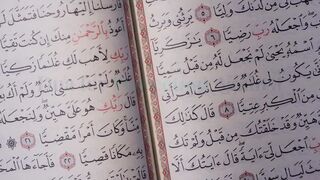 لَّدُنكَ وَلِيًّا ٥ يَرِثُنِي وَيَرِثُ
وَٱجْعَلْهُ رَبِّ رَضِيًّا ٦ يَٰزَكَرِيَّآ
ٱسْمُهُۥ يَحْيَىٰ لَمْ نَجْعَل لَّهُۥ مِن قَبْلُ سَمِيًّا
يَكُونُ لِي غُلَٰمٌ وَكَانَتِ ٱمْرَأَتِي
مِنَ ٱلْكِبَرِ عِتِيًّا ٨ قَالَ كَذَٰلِكَ
هَيِّنٌ وَقَدْ خَلَقْتُكَ مِن قَبْلُ وَلَمْ تَكُ
ٱجْعَل لِّيٓ ءَايَةً ۖ قَالَ ءَايَتُكَ أَلَّا
فَأَرْسَلْنَآ إِلَيْهَا رُوحَنَا فَتَمَثَّلَ
أَعُوذُ بِٱلرَّحْمَٰنِ مِنكَ إِن كُنتَ تَقِيًّا
رَبِّكِ لِأَهَبَ لَكِ غُلَٰمًا زَكِيًّا
غُلَٰمٌ وَلَمْ يَمْسَسْنِي بَشَرٌ وَلَمْ
قَالَ رَبُّكِ هُوَ عَلَيَّ هَيِّنٌ ۖ وَلِنَجْعَلَهُۥٓ
مِّنَّا ۚ وَكَانَ أَمْرًا مَّقْضِيًّا ٢١
بِهِۦ مَكَانًا قَصِيًّا ٢٢ فَأَجَآءَهَا